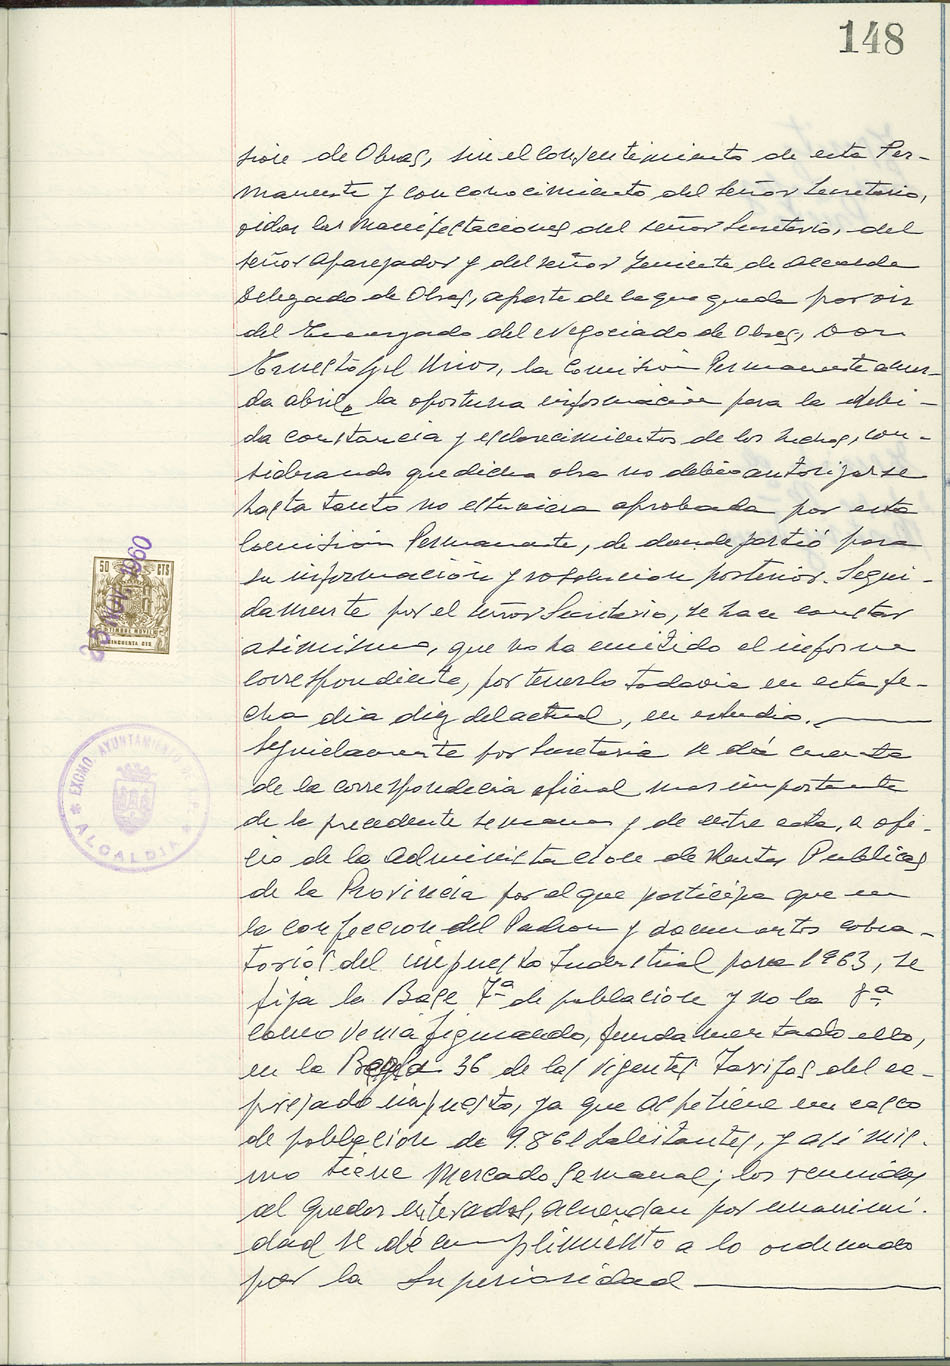 148
sion de Obras, sin el consentimiento de esta Per-
manente y con conocimiento del señor Secretario,
oidas las manifestaciones del señor Secretario, del
señor Aparejador y del señor Teniente de Alcalde
Delegado de Obras, aparte de la que queda por oir
del Encargado del Negociado de Obras, Don
Ernesto Gil, la Comision Permanente acuer-
da abrir la oportuna información para la debi-
da constancia y esclarecimientos de los hechos, con-
siderando que dicha obra no debio autorizarse
hasta tanto no estuviera aprobada por esta
Comisión Permanente, de donde partió para
su información y resolucion posterior. Segui-
damente por el señor Secretario, se hace constar
asimismo, que no ha emitido el informe
correspondiente, por tenerlo todavia en esta fe-
cha dia diez del actual, en estudio.
Seguidamente por Secretaria se dá cuenta
de la correspondecia oficial mas importante
de la precedente semana y de entre esta, a ofi-
cio de la Administracion de Rentas Publicas
de la Provincia por el que participa que en
la confeccion del Padron y documentos cobra-
torios del impuesto Industrial para 1963, se
fija la Base 7ª de poblacion y no la 8ª
como venia figurando, fundamentado ello,
en la Regla 36 de las vigentes Tarifas del ex-
presado impuesto, ya que Aspe tiene un casco
de poblacion de 9.861 habitantes, y asi mis-
mo tiene Mercado Semanal; los reunidos
al quedar enterados, acuerdan por unanimi-
dad se dé cumplimiento a lo ordenado
por la Superioridad
50 CTS
TIMBRE MOVIL
CINCUENTA CTS
NOV. 1960
EXCMO. AYUNTAMIENTO
ALCALDIA